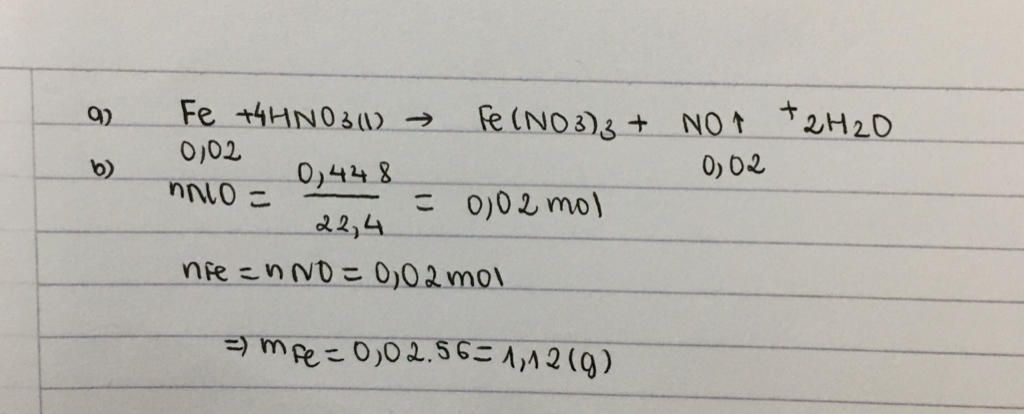 a) Fe +4HNO3(l) → Fe(NO3)3 + NO↑ + 2H2O
0,02 0,02
b) nNO = 0,448 / 22,4 = 0,02 mol
nFe = nNO = 0,02 mol
⇒ mFe = 0,02.56 = 1,12 (g)